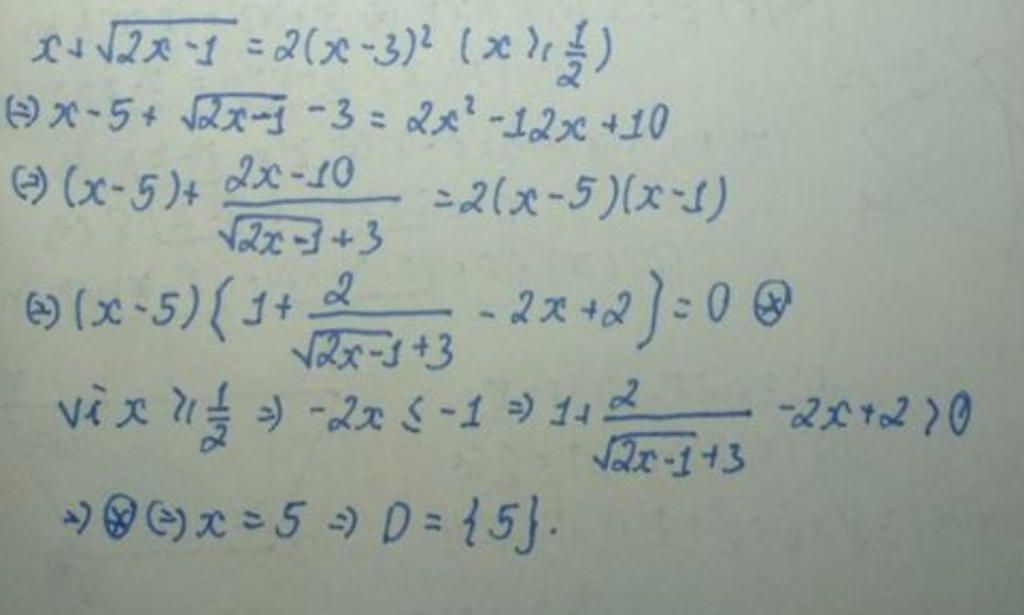 x + √(2x-1) = 2(x-3)² (x ≥ 1/2)
(=) x-5 + √(2x-1) - 3 = 2x² - 12x + 10
(=) (x-5) + (2x-10)/(√(2x-1) + 3) = 2(x-5)(x-1)
(=) (x-5)(1 + 2/(√(2x-1) + 3) - 2x + 2) = 0 ⊛
vì x ≥ 1/2 => -2x ≤ -1 => 1 + 2/(√(2x-1) + 3) - 2x + 2 > 0
=> ⊛ (=) x = 5 => D = {5}.